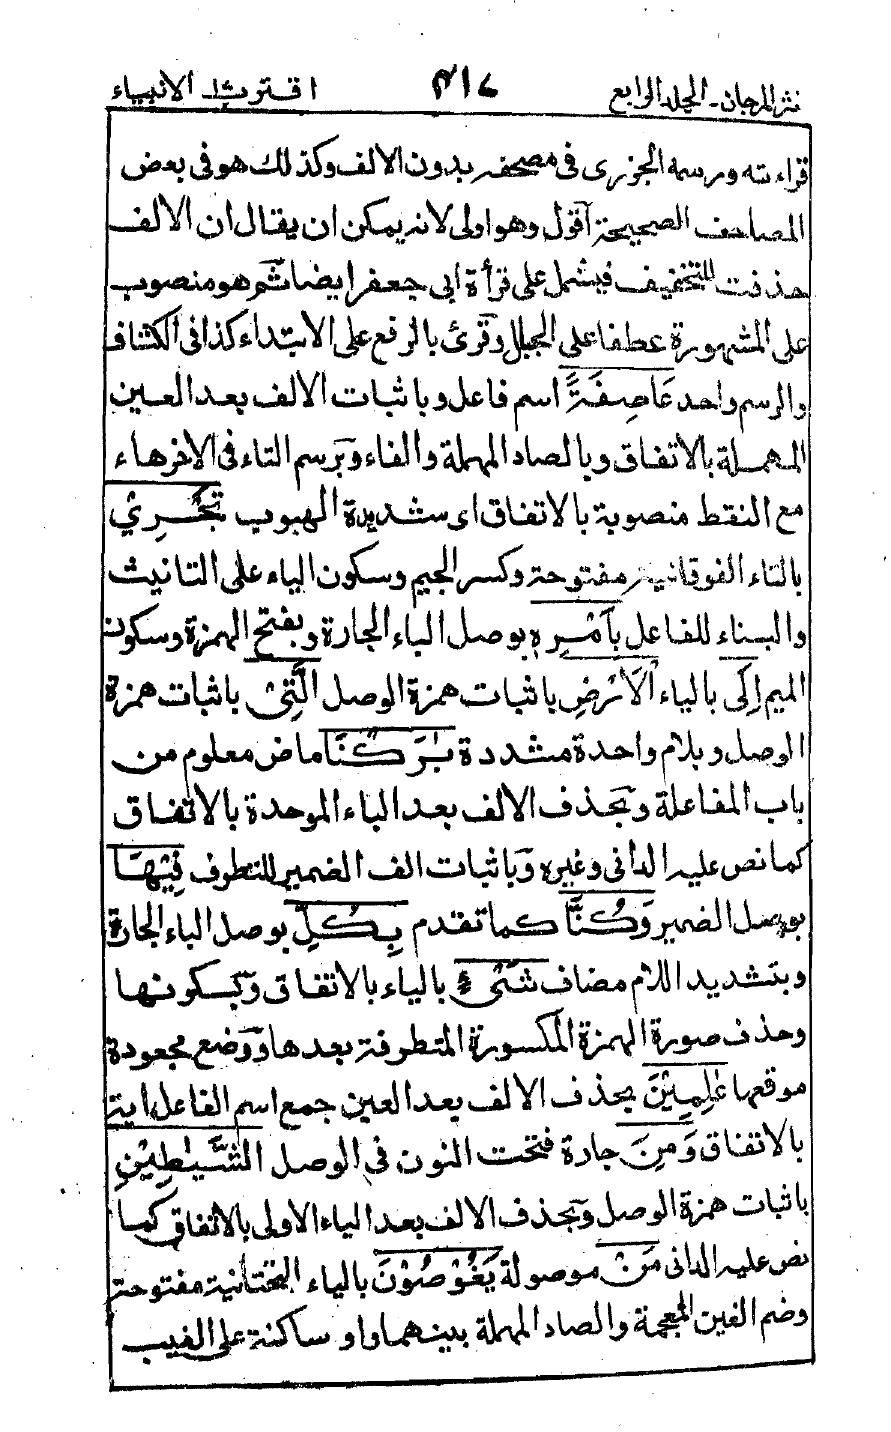 نثر المرجان ـ الجلد الرابع ٤١٧ اقترب ـ الانبیاء
قراءته ورسمه الجزری فی مصحفه بدون الالف وكذلك هو فی بعض
المصاحف الصحیحة أقول وهو اولی لانه یمكن ان یقال ان الالف
حذفت للتخفیف فیشمل علی قرأة ابی جعفر ایضا ثم هو منصوب
علی المشهورة عطفا علی الجبال وقرئ بالرفع علی الابتداء كذا فی الكشاف
والرسم واحد عَاصِفَةً اسم فاعل وباثبات الالف بعد العین
المهملة بالاتفاق وبالصاد المهملة والفاء وبرسم التاء فی الاخر هاء
مع النقط منصوبة بالاتفاق ای شدیدة الهبوب تَجْرِیْ
بالتاء الفوقانیة مفتوحة وكسر الجیم وسكون الیاء علی التانیث
والبناء للفاعل بِأَمْرِهٖ بوصل الباء الجارة وبفتح الهمزة وسكون
المیم اِلَی بالیاء الْاَرْضِ باثبات همزة الوصل الَّتِیْ باثبات همزة
الوصل وبلام واحدة مشددة بٰرَكْنَا ماض معلوم من
باب المفاعلة وبحذف الالف بعد الباء الموحدة بالاتفاق
كما نص علیه الدانی وغیره وباثبات الف الضمیر للتطرف فِیْهَا
بوصل الضمیر وَكُنَّا كما تقدم بِكُلِّ بوصل الباء الجارة
وبتشدید اللام مضاف شَیْءٍ بالیاء بالاتفاق وبسكونها
وحذف صورة الهمزة المكسورة المتطرفة بعدها ووضع مجعودة
موقعها عٰلِمِیْنَ بحذف الالف بعد العین جمع اسم الفاعل رایة
بالاتفاق وَمِنَ جارة فتحت النون فی الوصل الشَّیٰطِیْنِ
باثبات همزة الوصل وبحذف الالف بعد الیاء الاولی بالاتفاق كما
نص علیه الدانی مَنْ موصولة یَغُوْصُوْنَ بالیاء التحتانیة مفتوحة
وضم الغین المعجمة والصاد المهملة بینهما واو ساكنة علی الغیب